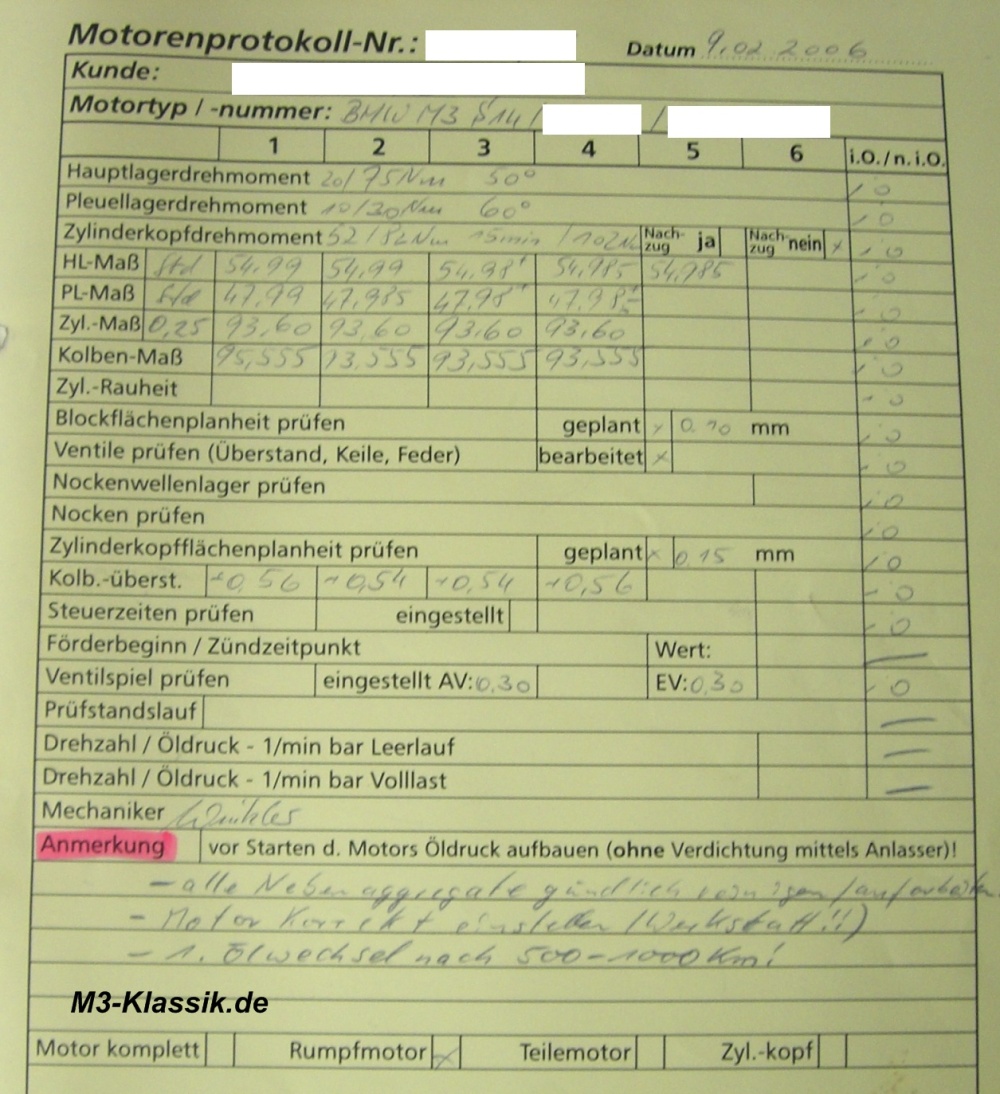 Motorenprotokoll-Nr.: Datum 9.02.2006
Kunde:
Motortyp / -nummer: BMW M3 S14 / /
1 2 3 4 5 6 i.O./n.i.O.
Hauptlagerdrehmoment 20/75Nm 50° i O
Pleuellagerdrehmoment 10/30Nm 60° i O
Zylinderkopfdrehmoment 52/82Nm 15min /102N Nach-zug ja Nach-zug nein x i O
HL-Maß Std 54,99 54,99 54,98+ 54,985 54,985 i O
PL-Maß Std 47,99 47,985 47,98+ 47,985 i O
Zyl.-Maß 0,25 93,60 93,60 93,60 93,60 i O
Kolben-Maß 93,555 93,555 93,555 i O
Zyl.-Rauheit i O
Blockflächenplanheit prüfen geplant x 0.10 mm i O
Ventile prüfen (Überstand, Keile, Feder) bearbeitet x i O
Nockenwellenlager prüfen i O
Nocken prüfen i O
Zylinderkopfflächenplanheit prüfen geplant x 0.15 mm i O
Kolb.-überst. +0,56 +0,54 +0,54 +0,56 i O
Steuerzeiten prüfen eingestellt i O
Förderbeginn / Zündzeitpunkt Wert: —
Ventilspiel prüfen eingestellt AV: 0,30 EV: 0,30 i O
Prüfstandslauf —
Drehzahl / Öldruck - 1/min bar Leerlauf —
Drehzahl / Öldruck - 1/min bar Volllast —
Mechaniker
Anmerkung vor Starten d. Motors Öldruck aufbauen (ohne Verdichtung mittels Anlasser)!
- alle Nebenaggregate gündlich reinigen/aufarbeiten
- Motor Korrekt einstellen (Werkstatt!!)
- 1. Ölwechsel nach 500-1000 Km!
M3-Klassik.de
Motor komplett Rumpfmotor x Teilemotor Zyl.-kopf